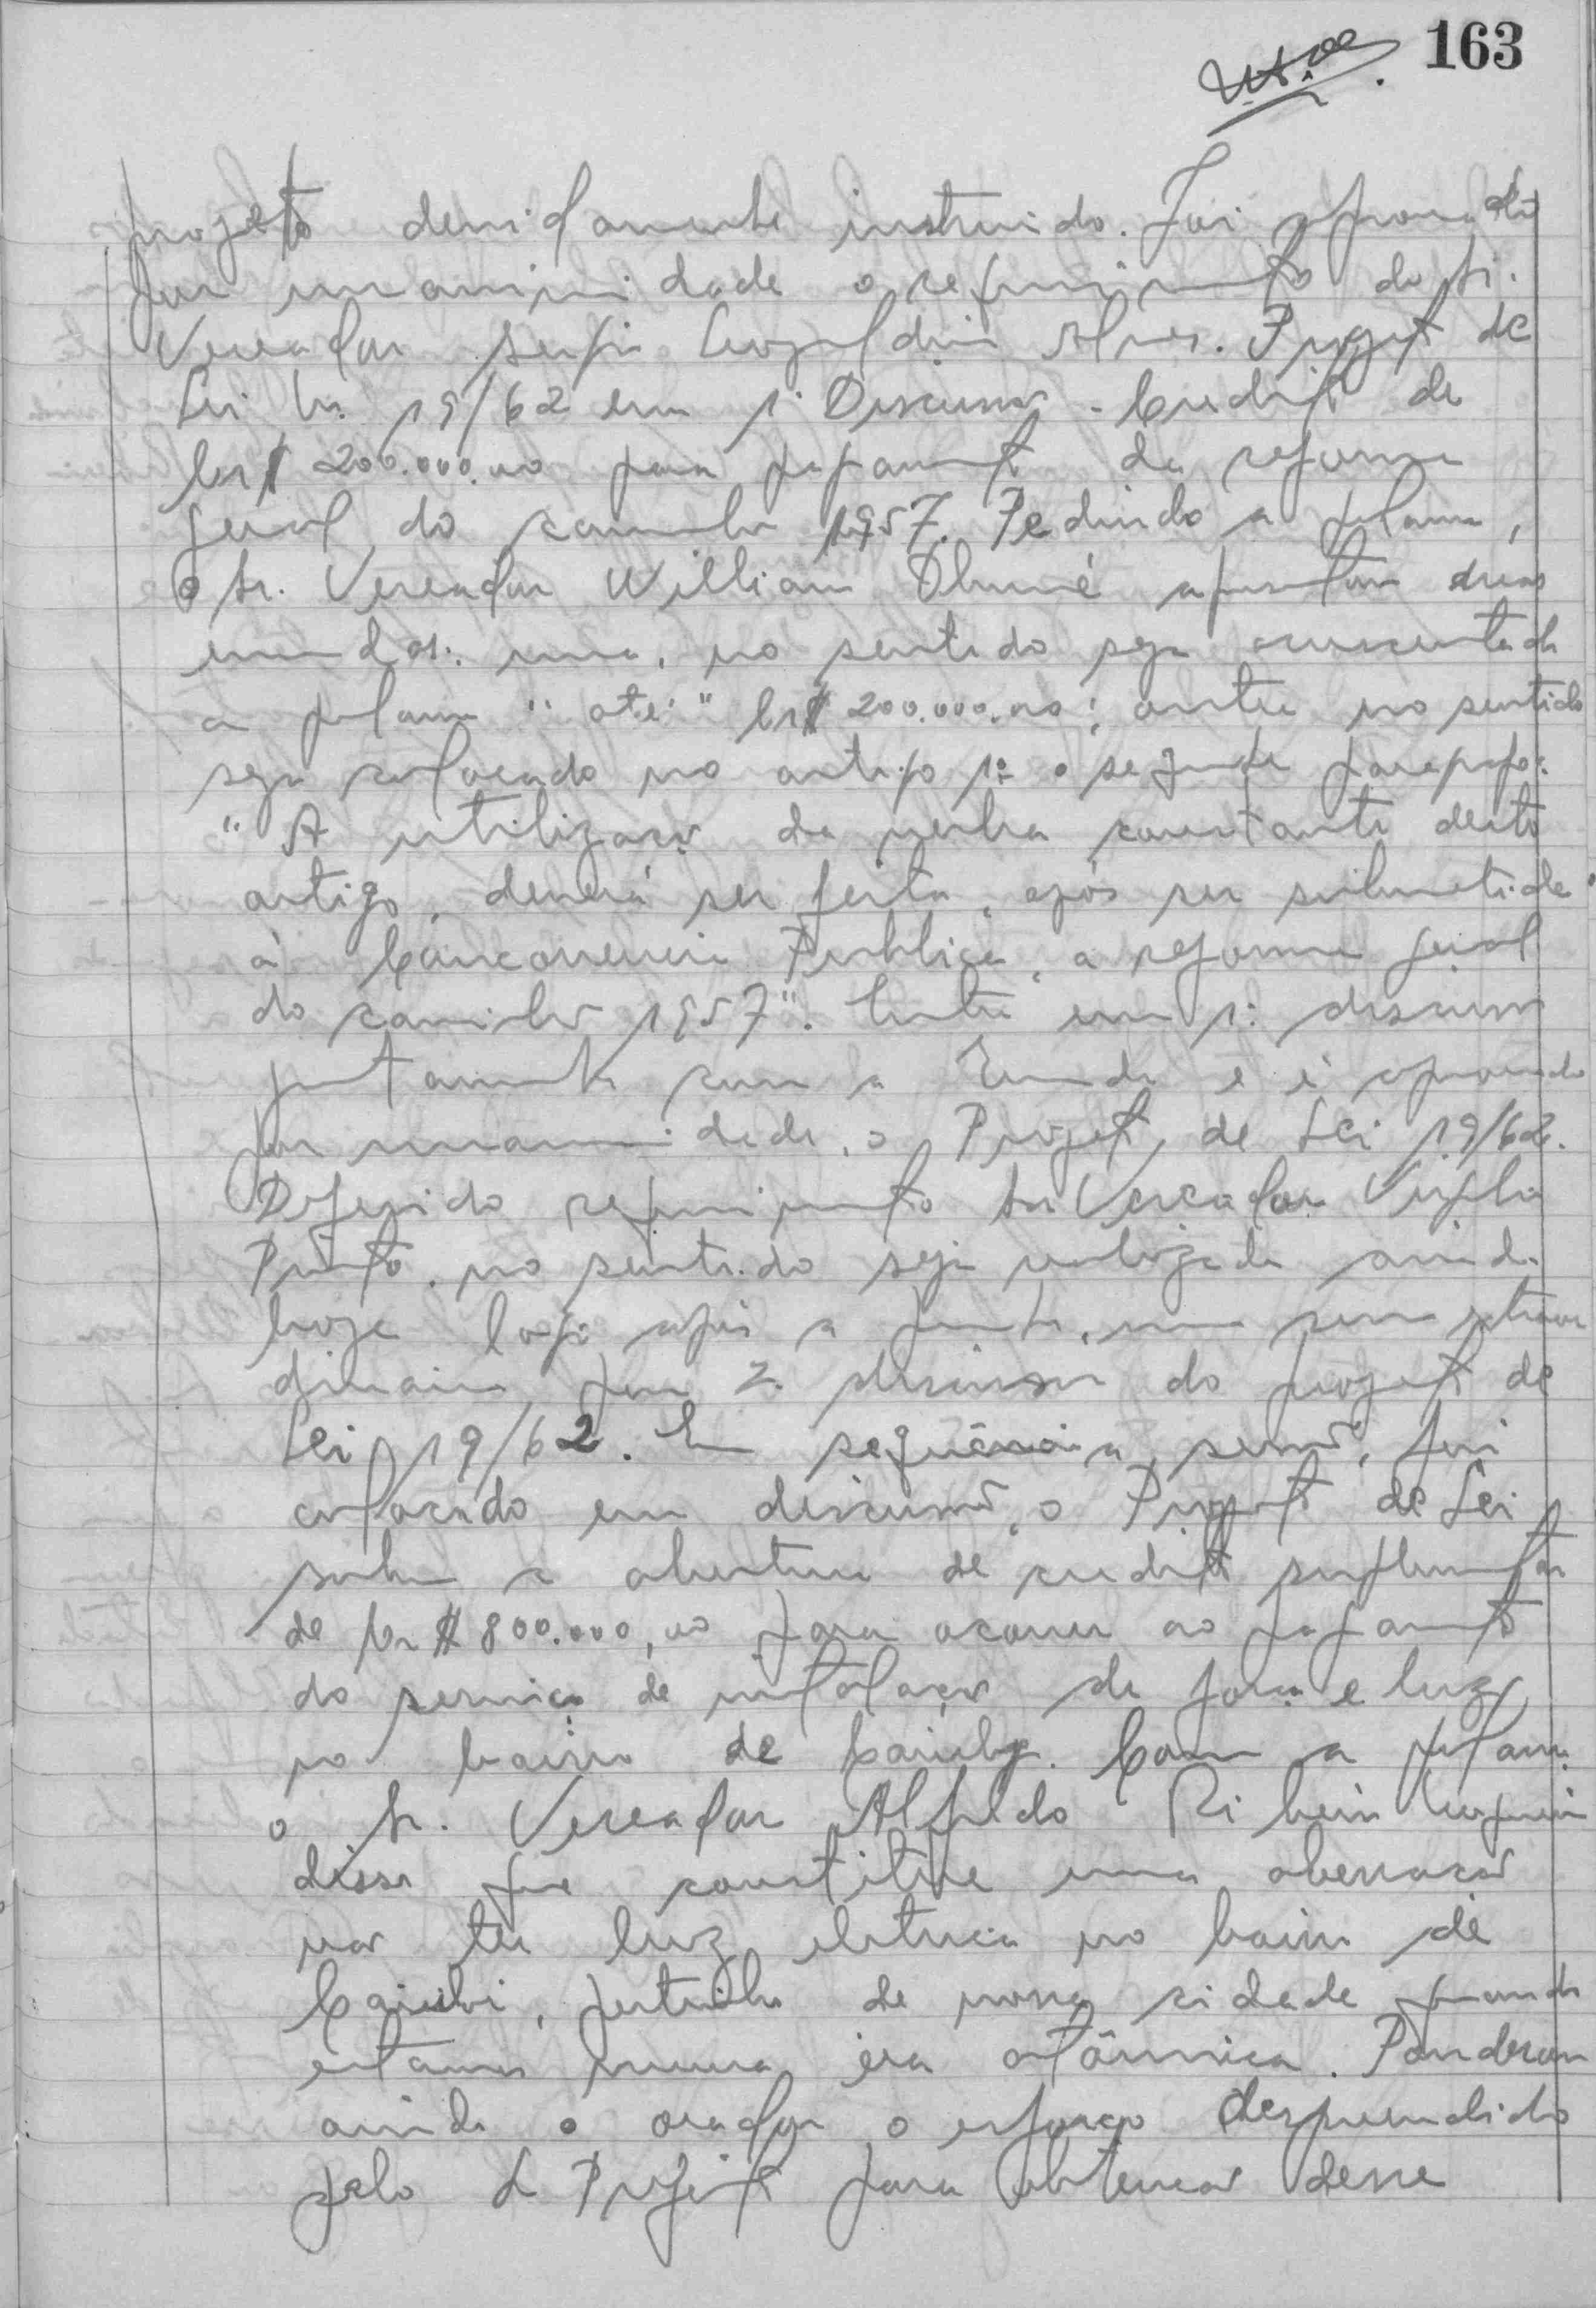 163
projeto devidamente instruido. Foi aprovado
por unanimidade o requerimento do Sr.
Vereador Leopoldino Alves. Projeto de
Lei n. 19/62 em 1ª Discussão. Credito de
Cr$ 200.000,00 para pagamento da reforma
geral do caminhão 1957. Pedindo a palavra,
o Sr. Vereador William apresentou duas
emendas: uma, no sentido seja acrescentada
a palavra "até" Cr$ 200.000,00; outra no sentido
seja colocado no artigo 1º o segundo paragrafo:
"A utilização da verba constante deste
artigo, deverá ser feita, após ser submetida
à Concorrencia Publica, a reforma geral
do caminhão 1957". Entra em 1ª discussão
juntamente com a Emenda e é aprovado
por unanimidade, o Projeto de Lei 19/62.
Deferido requerimento Sr Vereador Virgilio
Pinto, no sentido seja realizada ainda
hoje logo após a presente, uma sessão extraor
dinaria para 2ª discussão do projeto de
Lei 19/62. Em sequência a sessão, foi
colocado em discussão, o Projeto de Lei
sobre a abertura de credito suplementar
de Cr$ 800.000,00 para ocorrer ao pagamento
do serviço de instalação de força e luz
no bairro de Caiuby. Com a palavra
o Sr. Vereador Alfredo Ribeiro Nogueira
disse que constitue uma aberração
não ter luz eletrica no bairro de
Caiubi, pertinho de nossa cidade quando
estamos numa éra atômica. Ponderou
ainda o orador o esforço despendido
pelo Sr Prefeito para obtenção desse